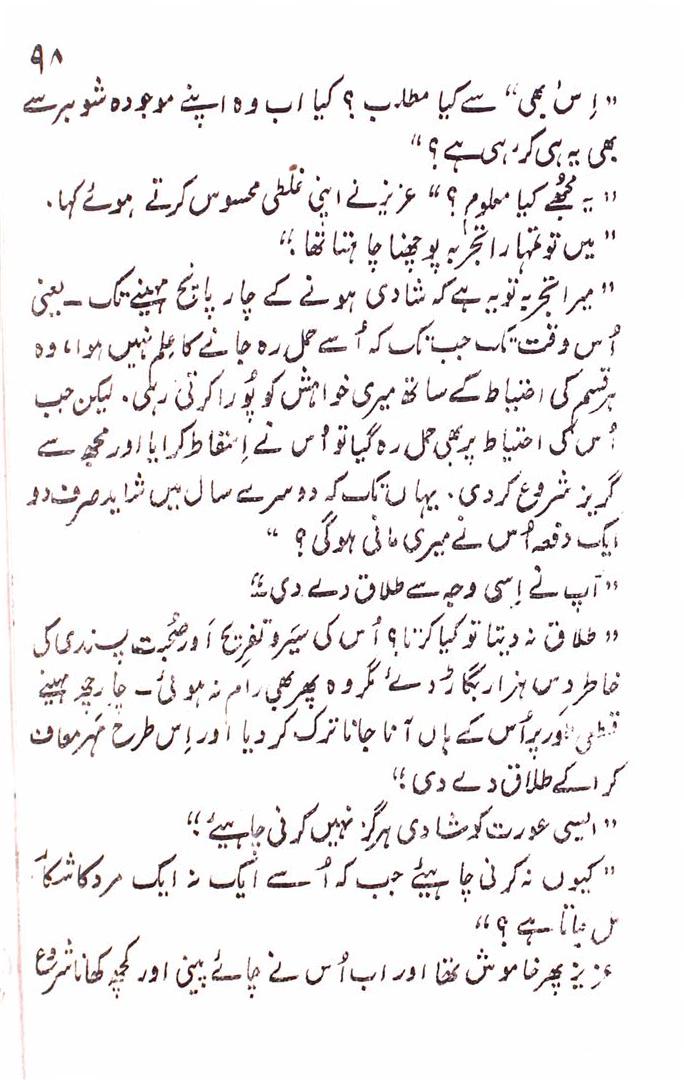 ۹۸
"اِس بھی" سے کیا مطلب؟ کیا اب وہ اپنے موجودہ شوہر سے
بھی یہ ہی کر رہی ہے؟"
"یہ مجھے کیا معلوم؟" عزیز نے اپنی غلطی محسوس کرتے ہوئے کہا۔
"میں تو تمہارا تجربہ پوچھنا چاہتا تھا۔"
"میرا تجربہ تو یہ ہے کہ شادی ہونے کے چار پانچ مہینے تک ــ یعنی
اُس وقت تک جب تک کہ اُسے حمل رہ جانے کا عِلم نہیں ہوا، وہ
ہر قسم کی احتیاط کے ساتھ میری خواہش کو پُورا کرتی رہی۔ لیکن جب
اُس کی احتیاط پر بھی حمل رہ گیا تو اُس نے اِسقاط کرایا اور مجھ سے
گریز شروع کر دی۔ یہاں تک کہ دوسرے سال میں شاید صرف دو
ایک دفعہ اُس نے میری مانی ہوگی؟"
"آپ نے اِسی وجہ سے طلاق دے دی۔"
"طلاق نہ دیتا تو کیا کرتا؟ اُس کی سَیر و تفریح اَور صُحبت پسندی کی
خاطر دس ہزار بگاڑ دیے مگر وہ پھر بھی رام نہ ہوئی ــ چار چھ مہینے
قطعی طور پر اُس کے ہاں آنا جانا ترک کر دیا اور اِس طرح مَہر معاف
کرا کے طلاق دے دی۔"
"ایسی عورت کو شادی ہرگز نہیں کرنی چاہیئے۔"
"کیوں نہ کرنی چاہیئے جب کہ اُسے ایک نہ ایک مرد کا شکار
مل جاتا ہے؟"
عزیز پھر خاموش تھا اور اب اُس نے چائے پینی اور کچھ کھانا شروع